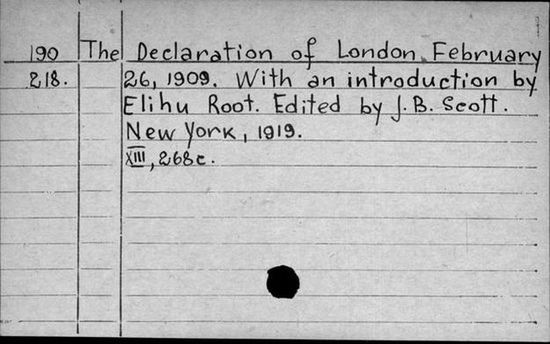 190 The Declaration of London February
218. 26, 1909. With an introduction by
Elihu Root. Edited by J. B. Scott.
New York, 1919.
XIII, 268c.